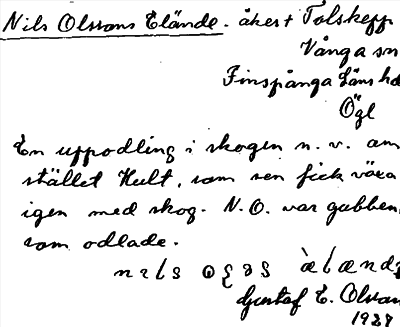 Nils Olssons Elände. åker + Tolskepp
Vånga sn
Finspånga läns hd
Ögl
En uppodling i skogen n. v. om
stället Hult, som sen fick växa
igen med skog. N. O. var gubben
som odlade.
Gustaf E. Olsson
1927